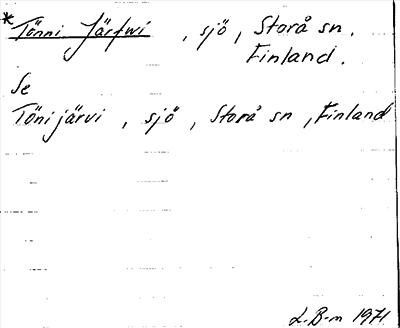 * Tönni Järfwi, sjö, Storå sn.
Finland.
Se
Tönijärvi, sjö, Storå sn, Finland
L.B-m 1971